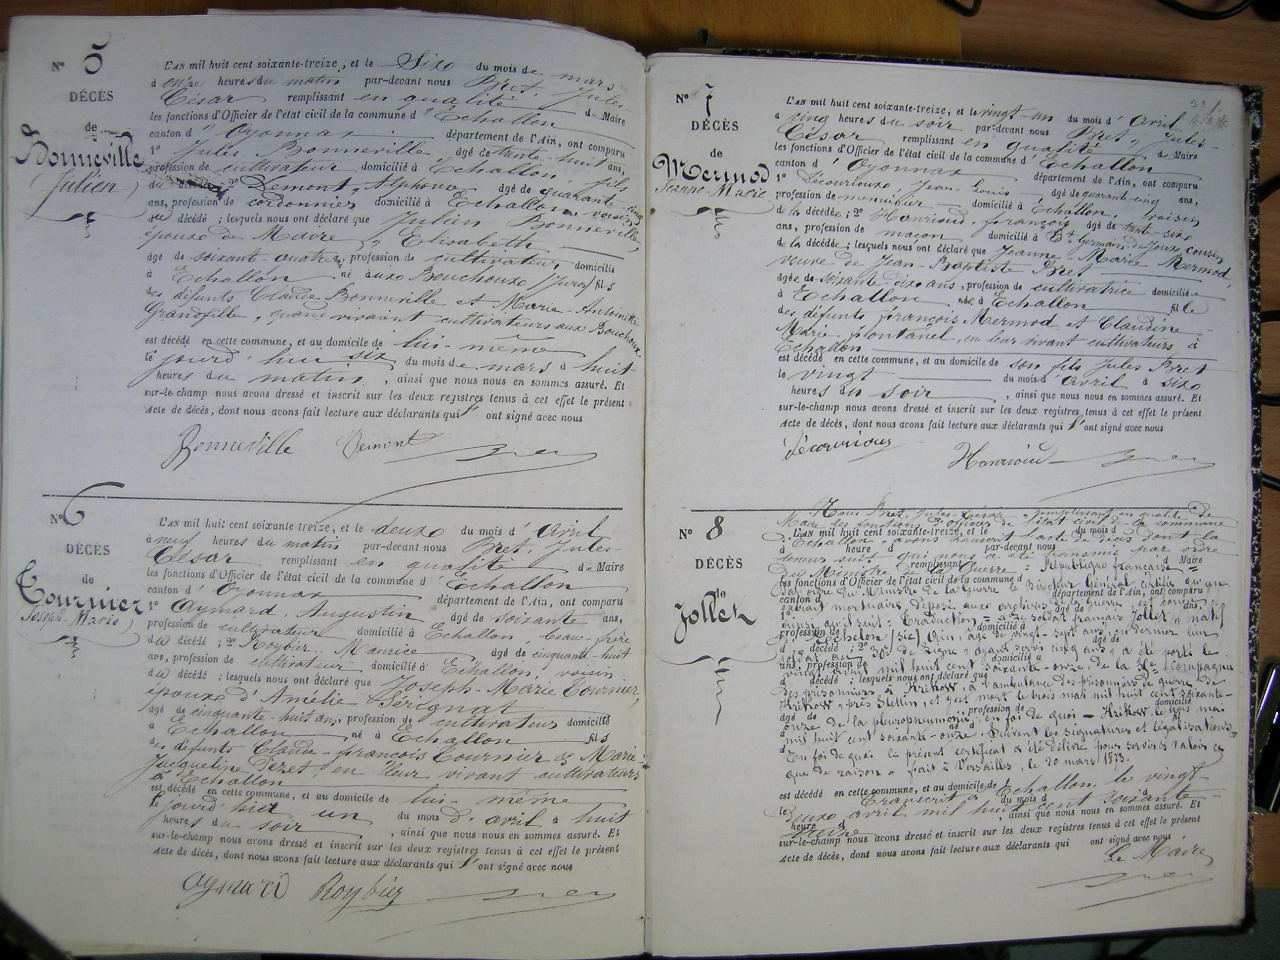 Nº 5
DÉCÈS
de
Bonneville
Julien
L'AN mil huit cent soixante-treize, et le Six du mois de mars
à onze heures du matin par-devant nous Pret, Jules-
César remplissant en qualité de Maire
les fonctions d'Officier de l'état civil de la commune d'Echallon
canton d'Oyonnax département de l'Ain, ont comparu
1º Jules Bonneville âgé de trente-huit ans,
profession de cultivateur domicilié à Echallon, fils
du 2º Demont, Alphonse âgé de quarante-cinq
ans, profession de cordonnier domicilié à Echallon, voisin
du décédé ; lesquels nous ont déclaré que Julien Bonneville,
époux de Maire, Elisabeth
âgé de soixante quatre, profession de cultivateur, domicilié
à Echallon né aux Bouchoux (Jura) fils
des défunts Claude Bonneville et Marie Antoinette
Grandfille, quand vivaient cultivateurs aux Bouchoux,
est décédé en cette commune, et au domicile de lui-même
le jourd'hui six du mois de mars à huit
heures du matin, ainsi que nous nous en sommes assuré. Et
sur-le-champ nous avons dressé et inscrit sur les deux registres tenus à cet effet le présent
Acte de décès, dont nous avons fait lecture aux déclarants qui l'ont signé avec nous
Bonneville Demont
Nº 6
DÉCÈS
de
Tournier
Joseph-Marie
L'AN mil huit cent soixante-treize, et le deux du mois d'Avril
à neuf heures du matin par-devant nous Pret, Jules-
César remplissant en qualité de Maire
les fonctions d'Officier de l'état civil de la commune d'Echallon
canton d'Oyonnax département de l'Ain, ont comparu
1º Aymard Augustin âgé de soixante ans,
profession de cultivateur domicilié à Echallon beau-frère
du décédé ; 2º Roybier Maurice âgé de cinquante-huit
ans, profession de cultivateur domicilié à Echallon, voisin
du décédé ; lesquels nous ont déclaré que Joseph-Marie Tournier,
époux d'Amélie Sérignat
âgé de cinquante-huit ans, profession de cultivateur domicilié
à Echallon né à Echallon fils
des défunts Claude-françois Tournier & Marie-
Jacqueline Peret, en leur vivant cultivateurs
à Echallon
est décédé en cette commune, et au domicile de lui-même
le jourd'hui un du mois d'avril à huit
heures du soir, ainsi que nous nous en sommes assuré. Et
sur-le-champ nous avons dressé et inscrit sur les deux registres tenus à cet effet le présent
Acte de décès, dont nous avons fait lecture aux déclarants qui l'ont signé avec nous
Aymard Roybier
Nº 7
DÉCÈS
de
Mermod
Jeanne-Marie
L'AN mil huit cent soixante-treize, et le vingt un du mois d'Avril
à cinq heures du soir par-devant nous Pret, Jules-
César remplissant en qualité de Maire
les fonctions d'Officier de l'état civil de la commune d'Echallon
canton d'Oyonnax département de l'Ain, ont comparu
1º Décourioux Jean-Louis âgé de quarante-cinq ans,
profession de menuisier domicilié à Echallon, voisin
de la décédée ; 2º Henrioud, françois âgé de trente-six
ans, profession de maçon domicilié à St Germain de Joux, cousin
de la décédée ; lesquels nous ont déclaré que Jeanne Marie Mermod,
veuve de Jean-Baptiste Pret
âgée de soixante-dix ans, profession de cultivatrice domiciliée
à Echallon née à Echallon fille
des défunts françois Mermod et Claudine
Marie fontanel, en leur vivant cultivateurs à
Echallon
est décédé en cette commune, et au domicile de son fils Jules Pret
le vingt du mois d'avril à six
heures du soir, ainsi que nous nous en sommes assuré. Et
sur-le-champ nous avons dressé et inscrit sur les deux registres tenus à cet effet le présent
Acte de décès, dont nous avons fait lecture aux déclarants qui l'ont signé avec nous
Décourioux
Henrioud
Nº 8
DÉCÈS
de
Jollet
Nous Pret, Jules-César, remplissant en qualité de
Maire les fonctions d'officier de l'état civil de la commune
d'Echallon, avons transcrit l'acte de décès dont la
teneur suit, qui nous a été transmis par ordre
du Ministre de la Guerre = République française =
Par ordre du Ministre de la Guerre le Directeur Général certifie qu'une
extrait mortuaire déposé aux archives de la guerre est
Traduction = Le soldat français Jollet, natif
d'Echelon (sic) Ain, âgé de vingt-sept ans, en dernier lieu
soldat au 36e de ligne,
mil huit cent soixante-onze, de la Compagnie
des prisonniers à Krékow, à l'ambulance des prisonniers de guerre de
Krékow, près Stettin, et y est mort le trois mai mil huit cent soixante-
onze de la pleuropneumonie, en foi de quoi — Krékow le trois mai
mil huit cent soixante-onze. Suivent les signatures et légalisations,
En foi de quoi le présent certificat a été délivré pour servir & valoir ce
que de raison = fait à Versailles, le 20 mars 1873.
Transcrit à Echallon, le vingt-
deux avril mil huit cent soixante
treize
sur-le-champ nous avons dressé et inscrit sur les deux registres tenus à cet effet le présent
Acte de décès, dont nous avons fait lecture aux déclarants qui ont signé avec nous
Le Maire,